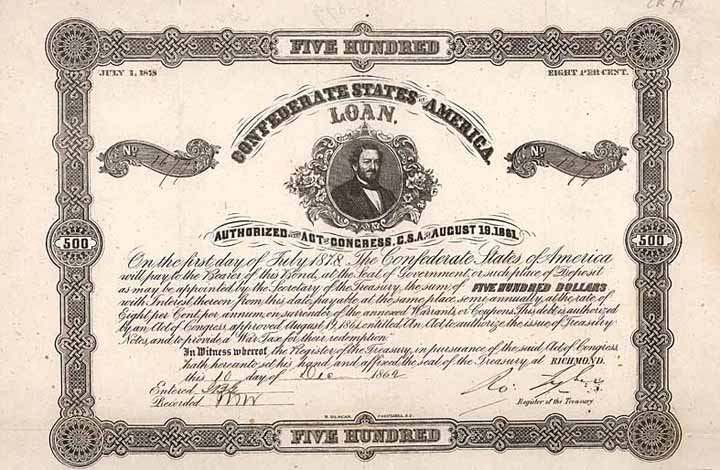 FIVE HUNDRED
JULY 1, 1878
EIGHT PER CENT.
CONFEDERATE STATES OF AMERICA
LOAN.
No
No
AUTHORIZED BY ACT OF CONGRESS, C.S.A. OF AUGUST 19, 1861.
500
500
On the first day of July 1878. The Confederate States of America
will pay to the Bearer of this Bond, at the Seat of Government, or such place of Deposit
as may be appointed by the Secretary of the Treasury, the sum of FIVE HUNDRED DOLLARS
with Interest thereon from this date, payable at the same place, semi-annually, at the rate of
Eight per Cent. per annum, on surrender of the annexed Warrants or Coupons. This debt is authorized
by an Act of Congress, approved August 19, 1861, entitled An Act to authorize the issue of Treasury
Notes, and to provide a War Tax for their redemption
In Witness whereof, the Register of the Treasury, in pursuance of the said Act of Congress
hath hereunto set his hand, and affixed the seal of the Treasury at RICHMOND.
this day of Dec 1862
Entered
Recorded
Register of the Treasury
FIVE HUNDRED